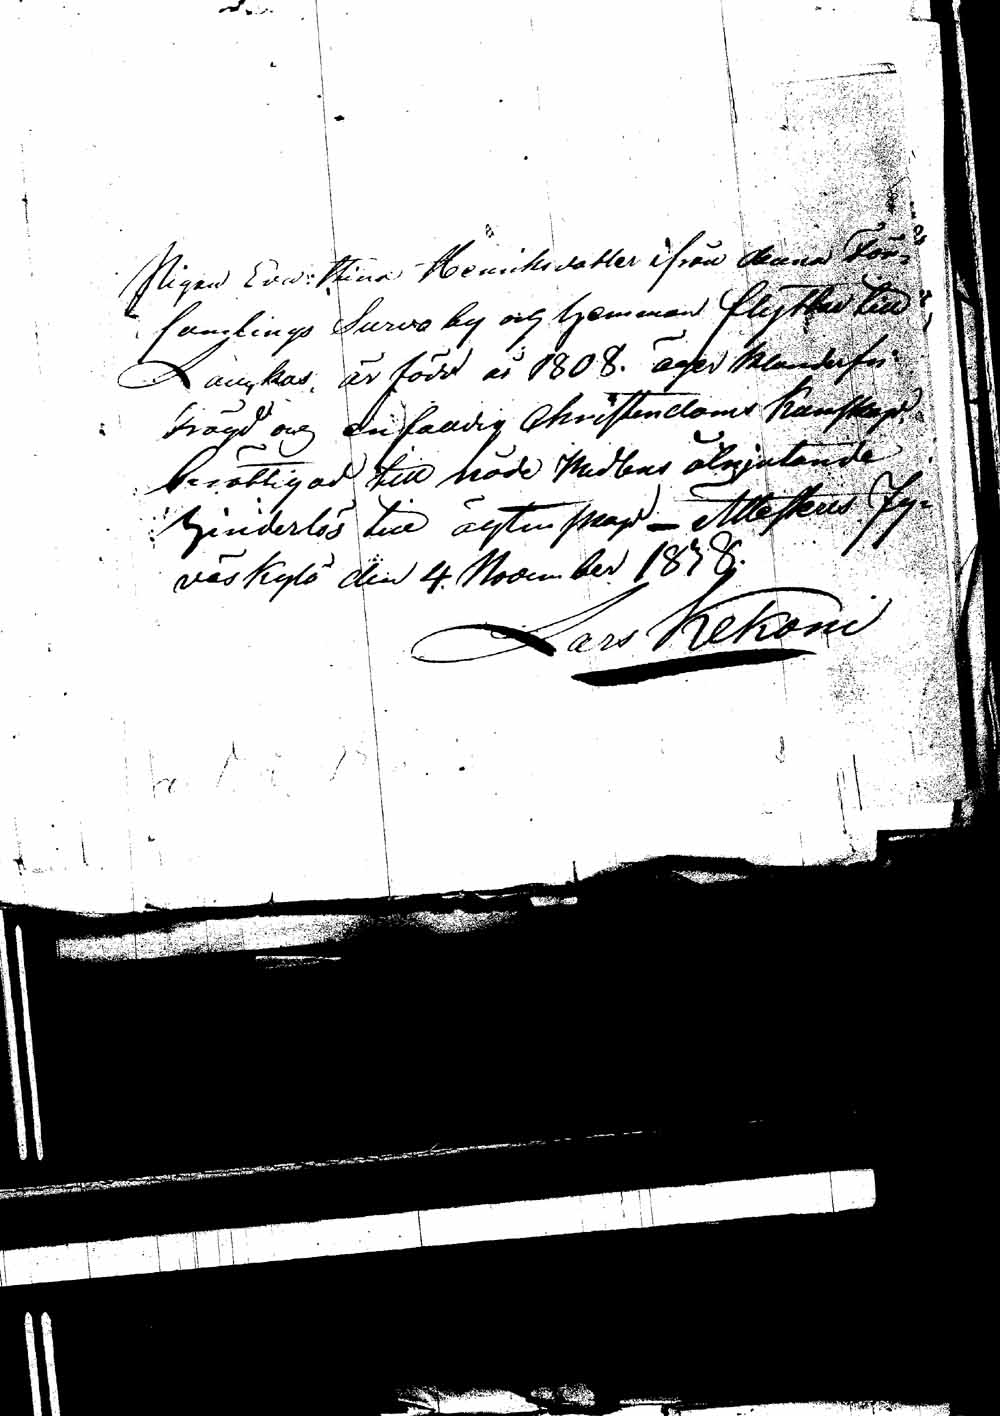 Pigan Eva Stina Henriksdotter ifrån denna För-
samlings Surva by och hemman flyttar till
Laukas, är född år 1808. äger klanderfri
frägd och enfaldig Christendoms kunskap,
berättigad till nåde Medlens åtnjutande
hinderlös till ägtenskap — Attesteras Jy-
väskylä den 4 November 1838.
Lars Kekoni